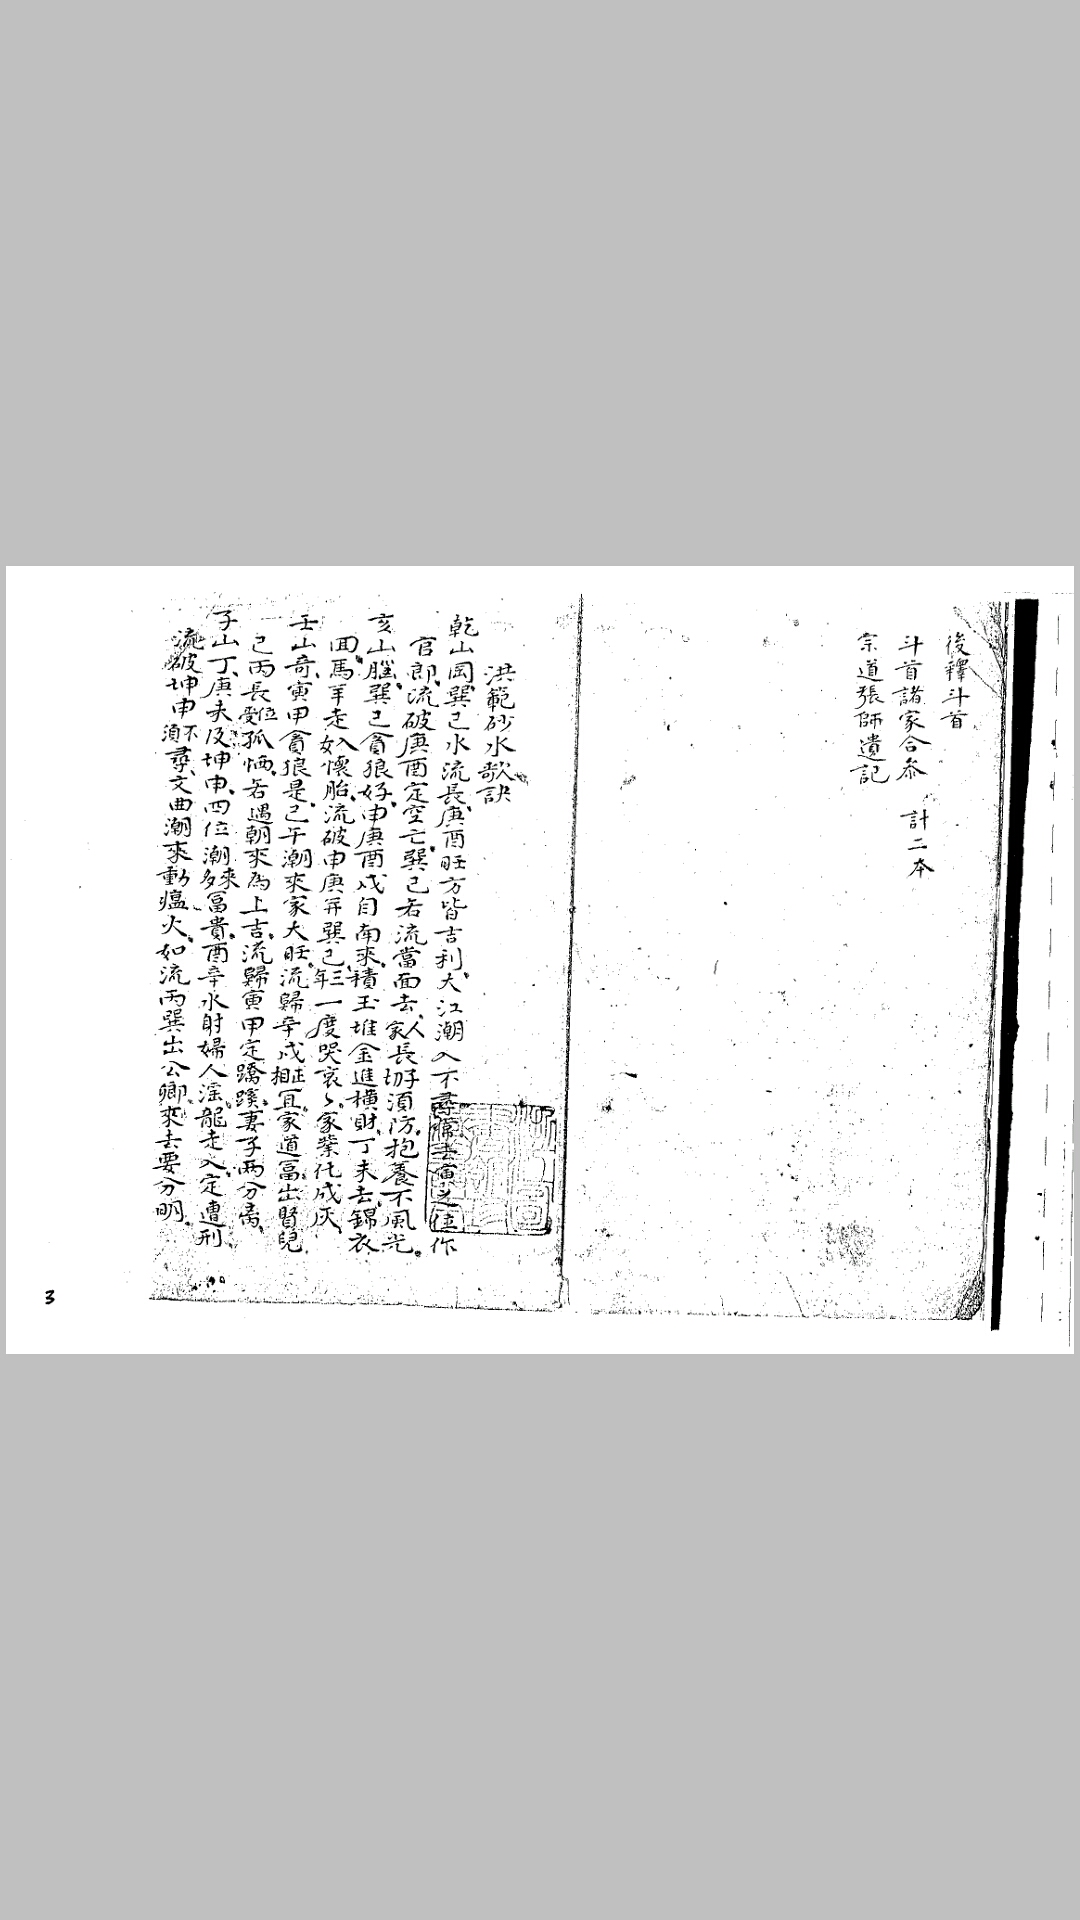 後釋斗首
斗首諸家合参 計二本
宗道張師遺記
洪範砂水歌訣
乾山岡巽巳水流長庚酉旺方皆吉利大江潮入不尋常去寅之位作
官郎流破庚酉定空亡巽巳若流當面去人家長切子須防抱養不風光
亥山腦巽巳貪狼好申庚酉戌自南來積玉堆金進橫財丁未去錦衣
囬馬羊走入女懷胎流破申庚并巽巳三年一度哭哀〻家業化成灰
壬山奇寅甲貪狼是巳午潮來家大旺流歸辛戌正相宜家道富出賢兒
巳丙長位受孤恓若遇朝來為上吉流歸寅甲定蹺蹊妻子兩分离
子山丁庚未及坤申四位潮來多冨貴酉辛水射婦人淫龍走入定遭刑
流破坤申不須尋文曲潮來動瘟火如流丙巽出公卿來去要分明
3